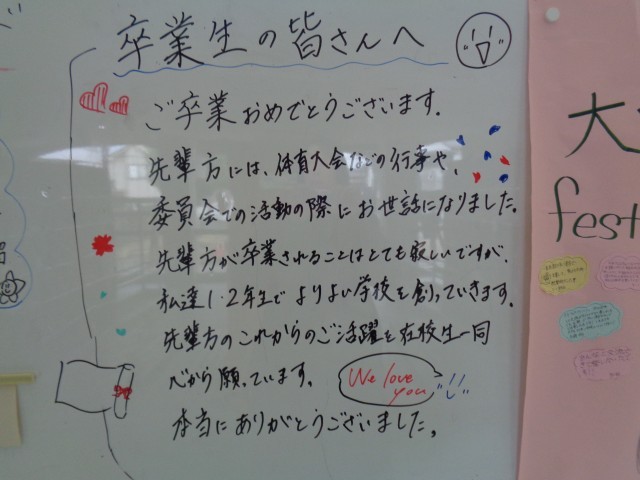 卒業生の皆さんへ
ご卒業おめでとうございます.
先輩方には、体育大会などの行事や、
委員会での活動の際にお世話になりました。
先輩方が卒業されることはとても寂しいですが、
私達1・2年生でよりよい学校を創っていきます.
先輩方のこれからのご活躍を在校生一同
心から願っています.
We love
you
本当にありがとうございました。
大
fest